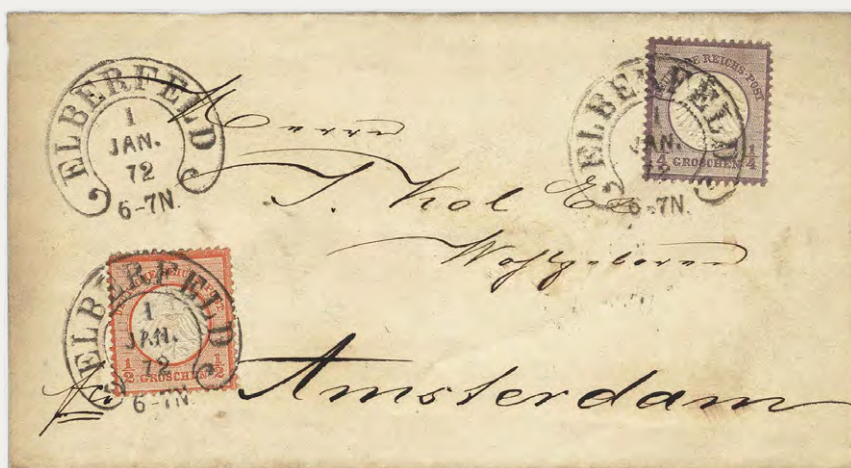 ELBERFELD
1
JAN.
72
6-7N.
DE REICHS-POST
ELBERFELD
1
JAN.
72
6-7N.
1/4 GROSCHEN 1/4
Herrn
J. Kol
Wohlgeboren
ELBERFELD
1
JAN.
72
6-7N.
1/2 GROSCHEN 1/2
Amsterdam